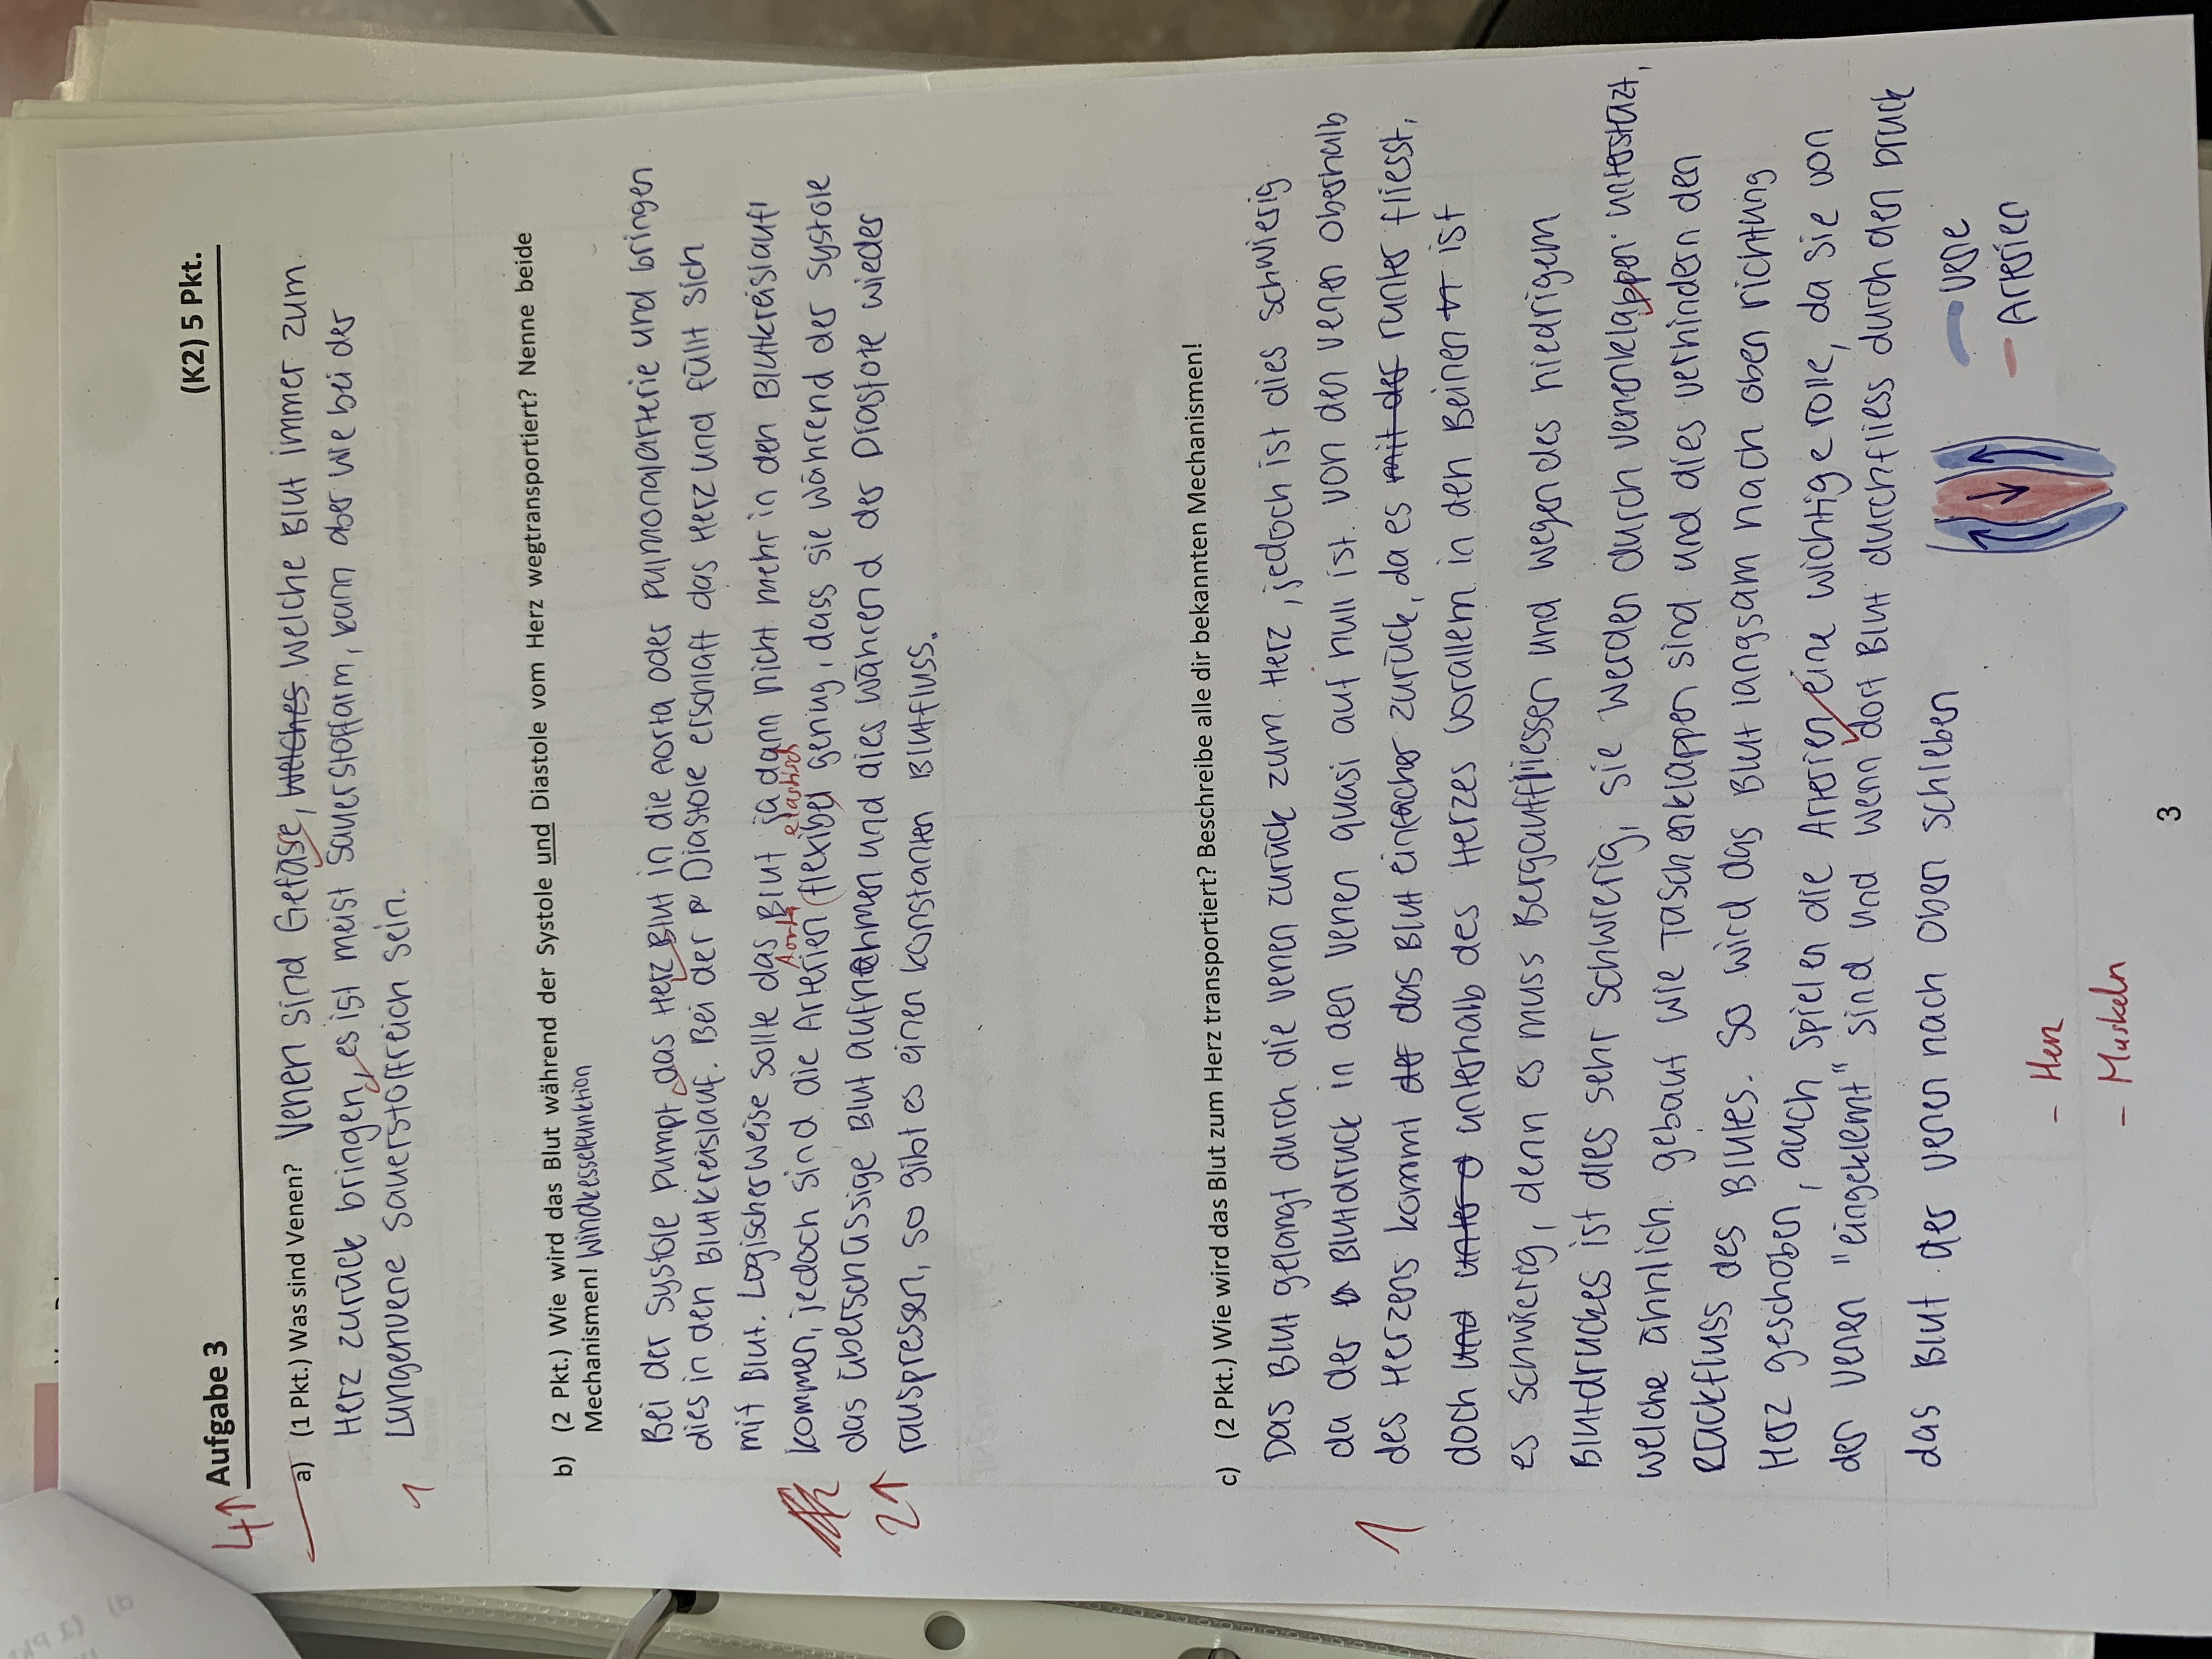 4↑ Aufgabe 3 (K2) 5 Pkt.
a) (1 Pkt.) Was sind Venen? Venen sind Gefäse, welches welche Blut immer zum
Herz zurück bringen, es ist meist Sauerstoffarm, kann aber wie bei der
Lungenvene sauerstoffreich sein.
1
b) (2 Pkt.) Wie wird das Blut während der Systole und Diastole vom Herz wegtransportiert? Nenne beide
Mechanismen! Windkesselfunktion
Bei der Systole pumpt das Herz Blut in die Aorta oder Pulmonalarterie und bringen
dies in den Blutkreislauf. Bei der Diastole erschlaft das Herz und füllt sich
mit Blut. Logischerweise sollte das Blut ja dann nicht mehr in den Blutkreislauf
Aorta elastisch
kommen, jedoch sind die Arterien (flexibel genug, dass sie während der Systole
das überschüssige Blut aufnehmen und dies während der Diastole wieder
rauspressen, so gibt es einen konstanten Blutfluss.
2↑
c) (2 Pkt.) Wie wird das Blut zum Herz transportiert? Beschreibe alle dir bekannten Mechanismen!
Das Blut gelangt durch die Venen zurück zum Herz, jedoch ist dies schwierig
da der Blutdruck in den Venen quasi auf null ist. Von den Venen oberhalb
1
des Herzens kommt der das Blut einfacher zurück, da es mit der runter fliesst,
doch und unter unterhalb des Herzes vorallem in den Beinen ist
es schwierig, denn es muss Bergauffliessen und wegen des niedrigem
Blutdruckes ist dies sehr schwierig. Sie werden durch Venenklappen unterstüzt,
welche ähnlich gebaut wie Taschenklappen sind und dies verhindern den
Rückfluss des Blutes. So wird das Blut langsam nach oben richtung
Herz geschoben, auch spielen die Arterien eine wichtige rolle, da sie von
der Venen "eingeklemt" sind und wenn dort Blut durchfliess durch den Druck
das Blut der Venen nach oben schieben
Vene
Arterien
- Herz
- Muskeln
3